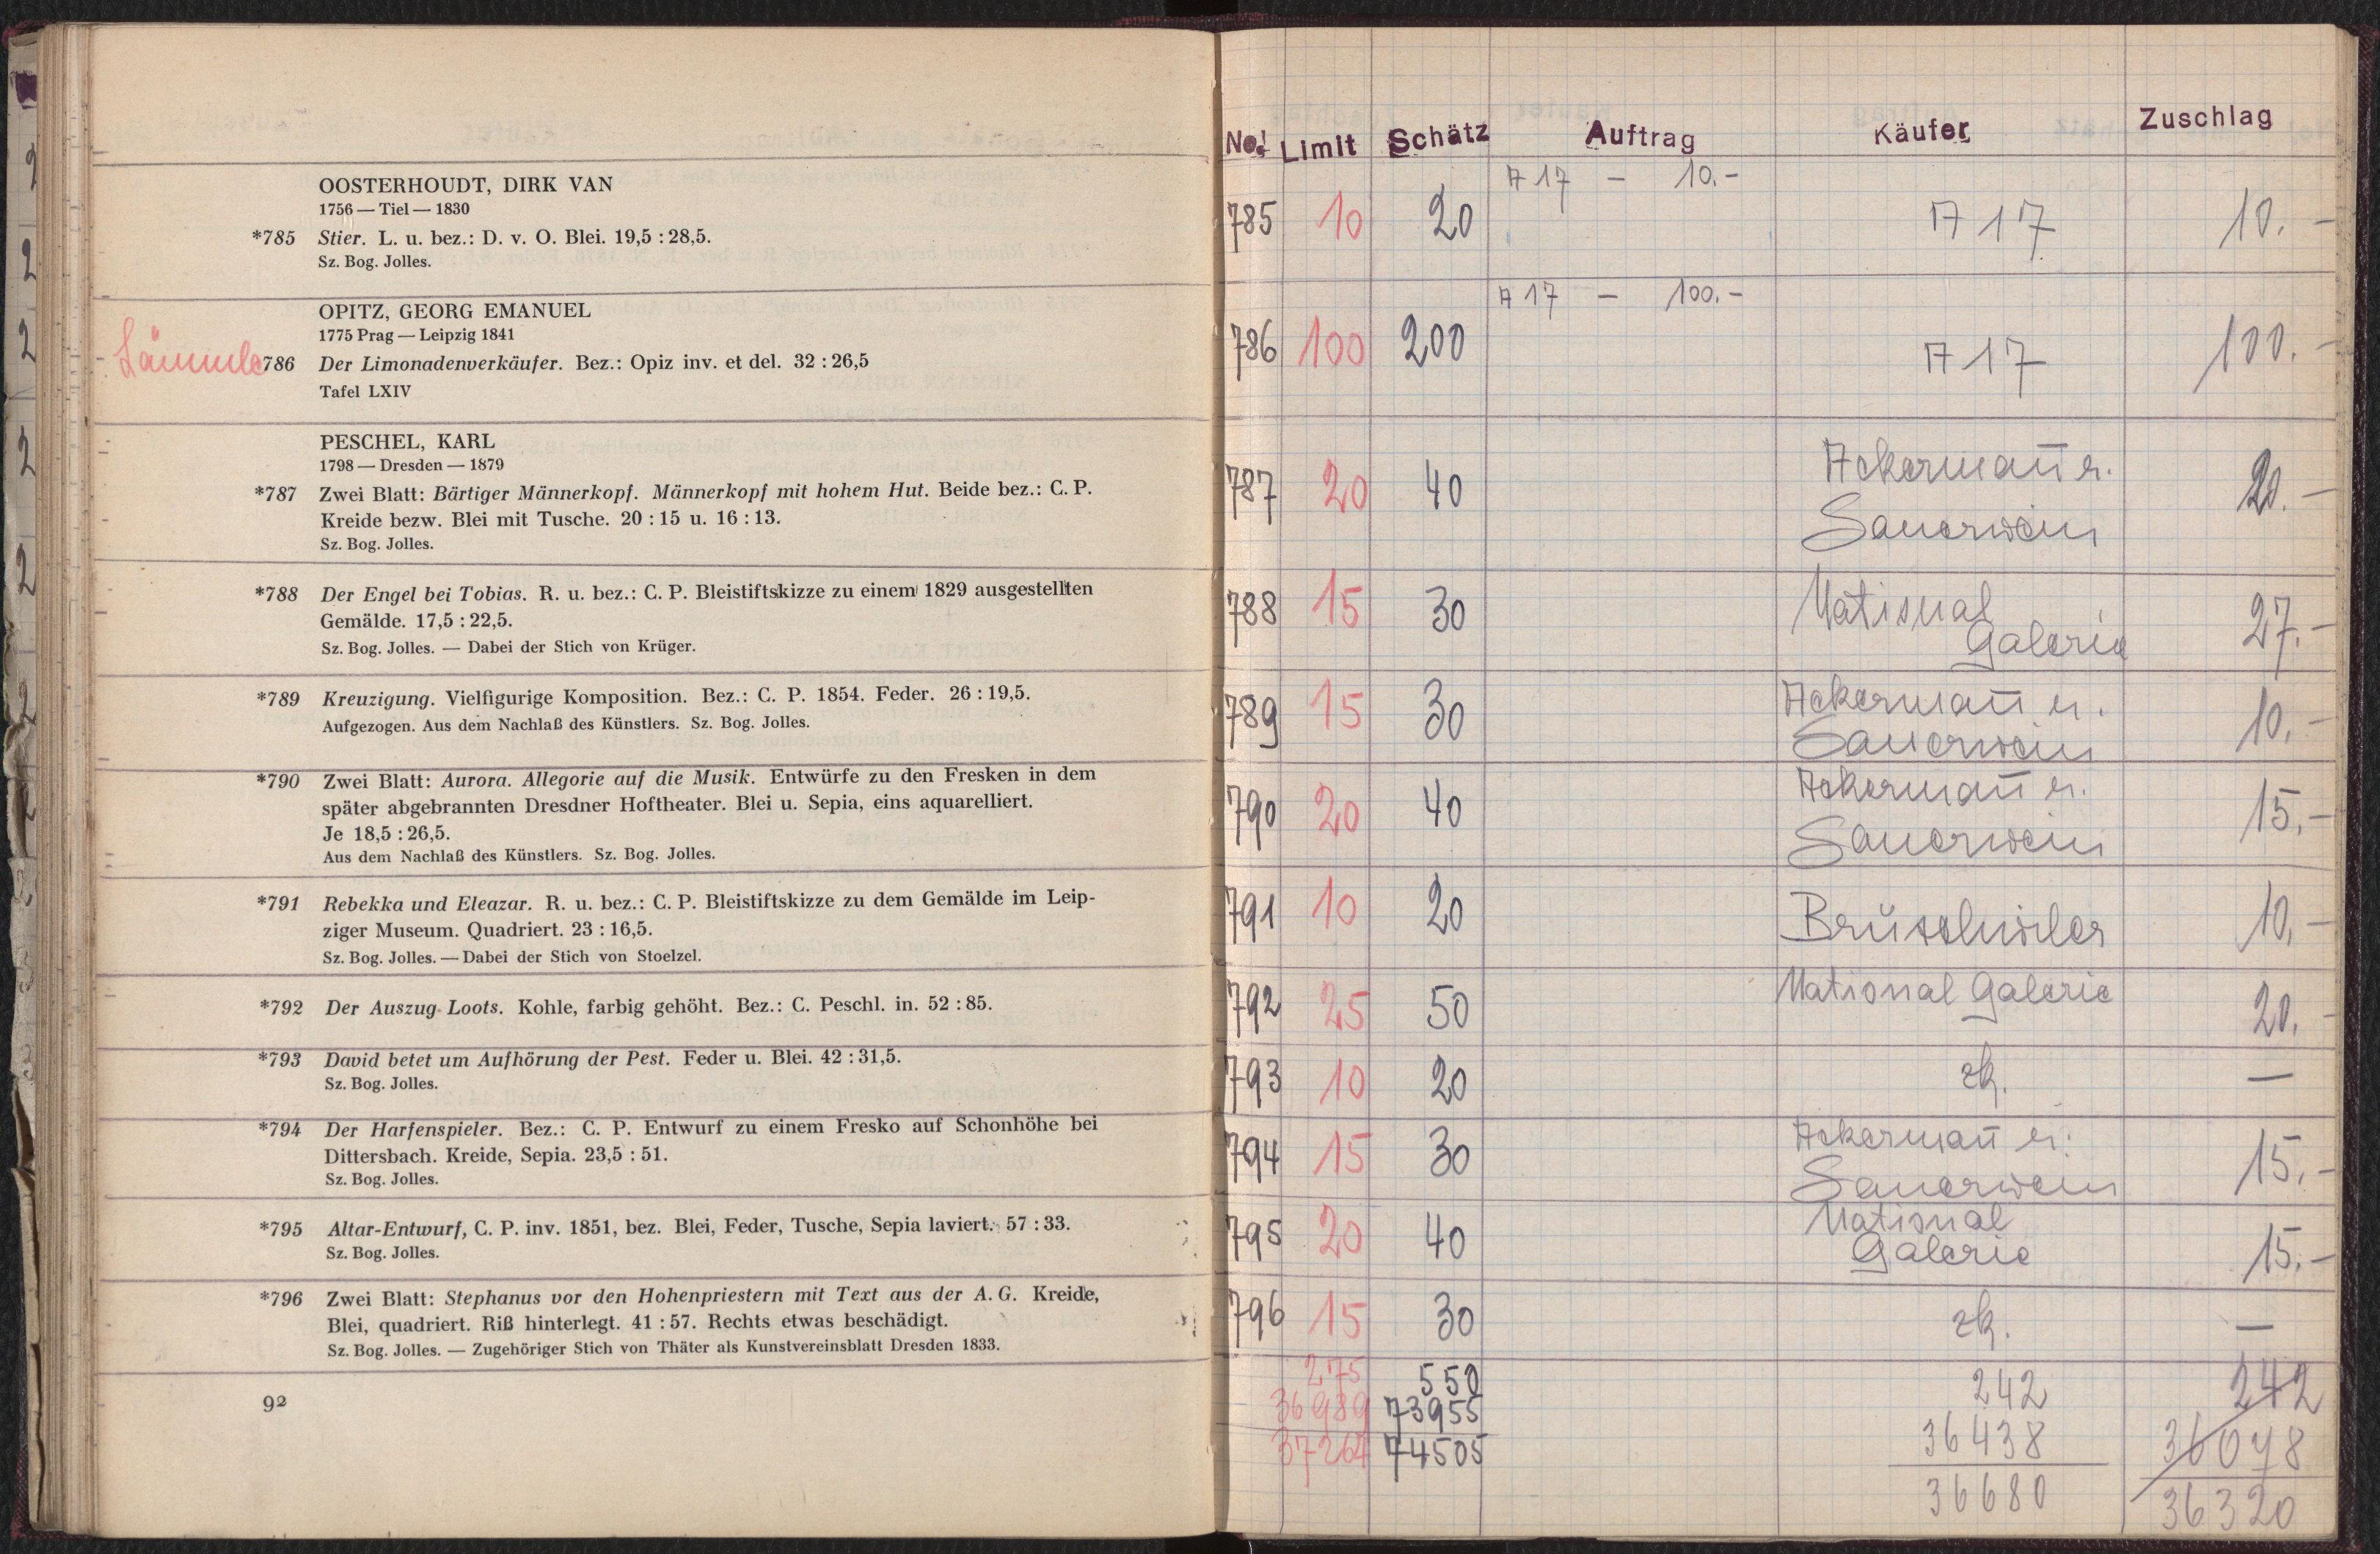 OOSTERHOUDT, DIRK VAN
1756 — Tiel — 1830
*785 Stier. L. u. bez.: D. v. O. Blei. 19,5 : 28,5.
Sz. Bog. Jolles.
OPITZ, GEORG EMANUEL
1775 Prag — Leipzig 1841
Lämmle 786 Der Limonadenverkäufer. Bez.: Opiz inv. et del. 32 : 26,5
Tafel LXIV
PESCHEL, KARL
1798 — Dresden — 1879
*787 Zwei Blatt: Bärtiger Männerkopf. Männerkopf mit hohem Hut. Beide bez.: C. P.
Kreide bezw. Blei mit Tusche. 20 : 15 u. 16 : 13.
Sz. Bog. Jolles.
*788 Der Engel bei Tobias. R. u. bez.: C. P. Bleistiftskizze zu einem 1829 ausgestellten
Gemälde. 17,5 : 22,5.
Sz. Bog. Jolles. — Dabei der Stich von Krüger.
*789 Kreuzigung. Vielfigurige Komposition. Bez.: C. P. 1854. Feder. 26 : 19,5.
Aufgezogen. Aus dem Nachlaß des Künstlers. Sz. Bog. Jolles.
*790 Zwei Blatt: Aurora. Allegorie auf die Musik. Entwürfe zu den Fresken in dem
später abgebrannten Dresdner Hoftheater. Blei u. Sepia, eins aquarelliert.
Je 18,5 : 26,5.
Aus dem Nachlaß des Künstlers. Sz. Bog. Jolles.
*791 Rebekka und Eleazar. R. u. bez.: C. P. Bleistiftskizze zu dem Gemälde im Leip-
ziger Museum. Quadriert. 23 : 16,5.
Sz. Bog. Jolles. — Dabei der Stich von Stoelzel.
*792 Der Auszug Loots. Kohle, farbig gehöht. Bez.: C. Peschl. in. 52 : 85.
*793 David betet um Aufhörung der Pest. Feder u. Blei. 42 : 31,5.
Sz. Bog. Jolles.
*794 Der Harfenspieler. Bez.: C. P. Entwurf zu einem Fresko auf Schonhöhe bei
Dittersbach. Kreide, Sepia. 23,5 : 51.
Sz. Bog. Jolles.
*795 Altar-Entwurf, C. P. inv. 1851, bez. Blei, Feder, Tusche, Sepia laviert. 57 : 33.
Sz. Bog. Jolles.
*796 Zwei Blatt: Stephanus vor den Hohenpriestern mit Text aus der A. G. Kreide,
Blei, quadriert. Riß hinterlegt. 41 : 57. Rechts etwas beschädigt.
Sz. Bog. Jolles. — Zugehöriger Stich von Thäter als Kunstvereinsblatt Dresden 1833.
92
No. Limit Schätz Auftrag Käufer Zuschlag
A 17 — 10.-
785 10 20 A 17 10.-
A 17 — 100.-
786 100 200 A 17 100.-
787 20 40 Ackermann u. 20.-
Sauerwein
788 15 30 National 27.-
Galerie
789 15 30 Ackermann u. 10.-
Sauerwein
790 20 40 Ackermann u. 15.-
Sauerwein
791 10 20 Brüschwiler 10,-
792 25 50 National Galerie 20.-
793 10 20 zk. —
794 15 30 Ackermann u. 15.-
Sauerwein
795 20 40 National
Galerie 15.-
796 15 30 zk. —
275 550 242 242
36989 73955 36438 36078
37264 74505 36680 36320